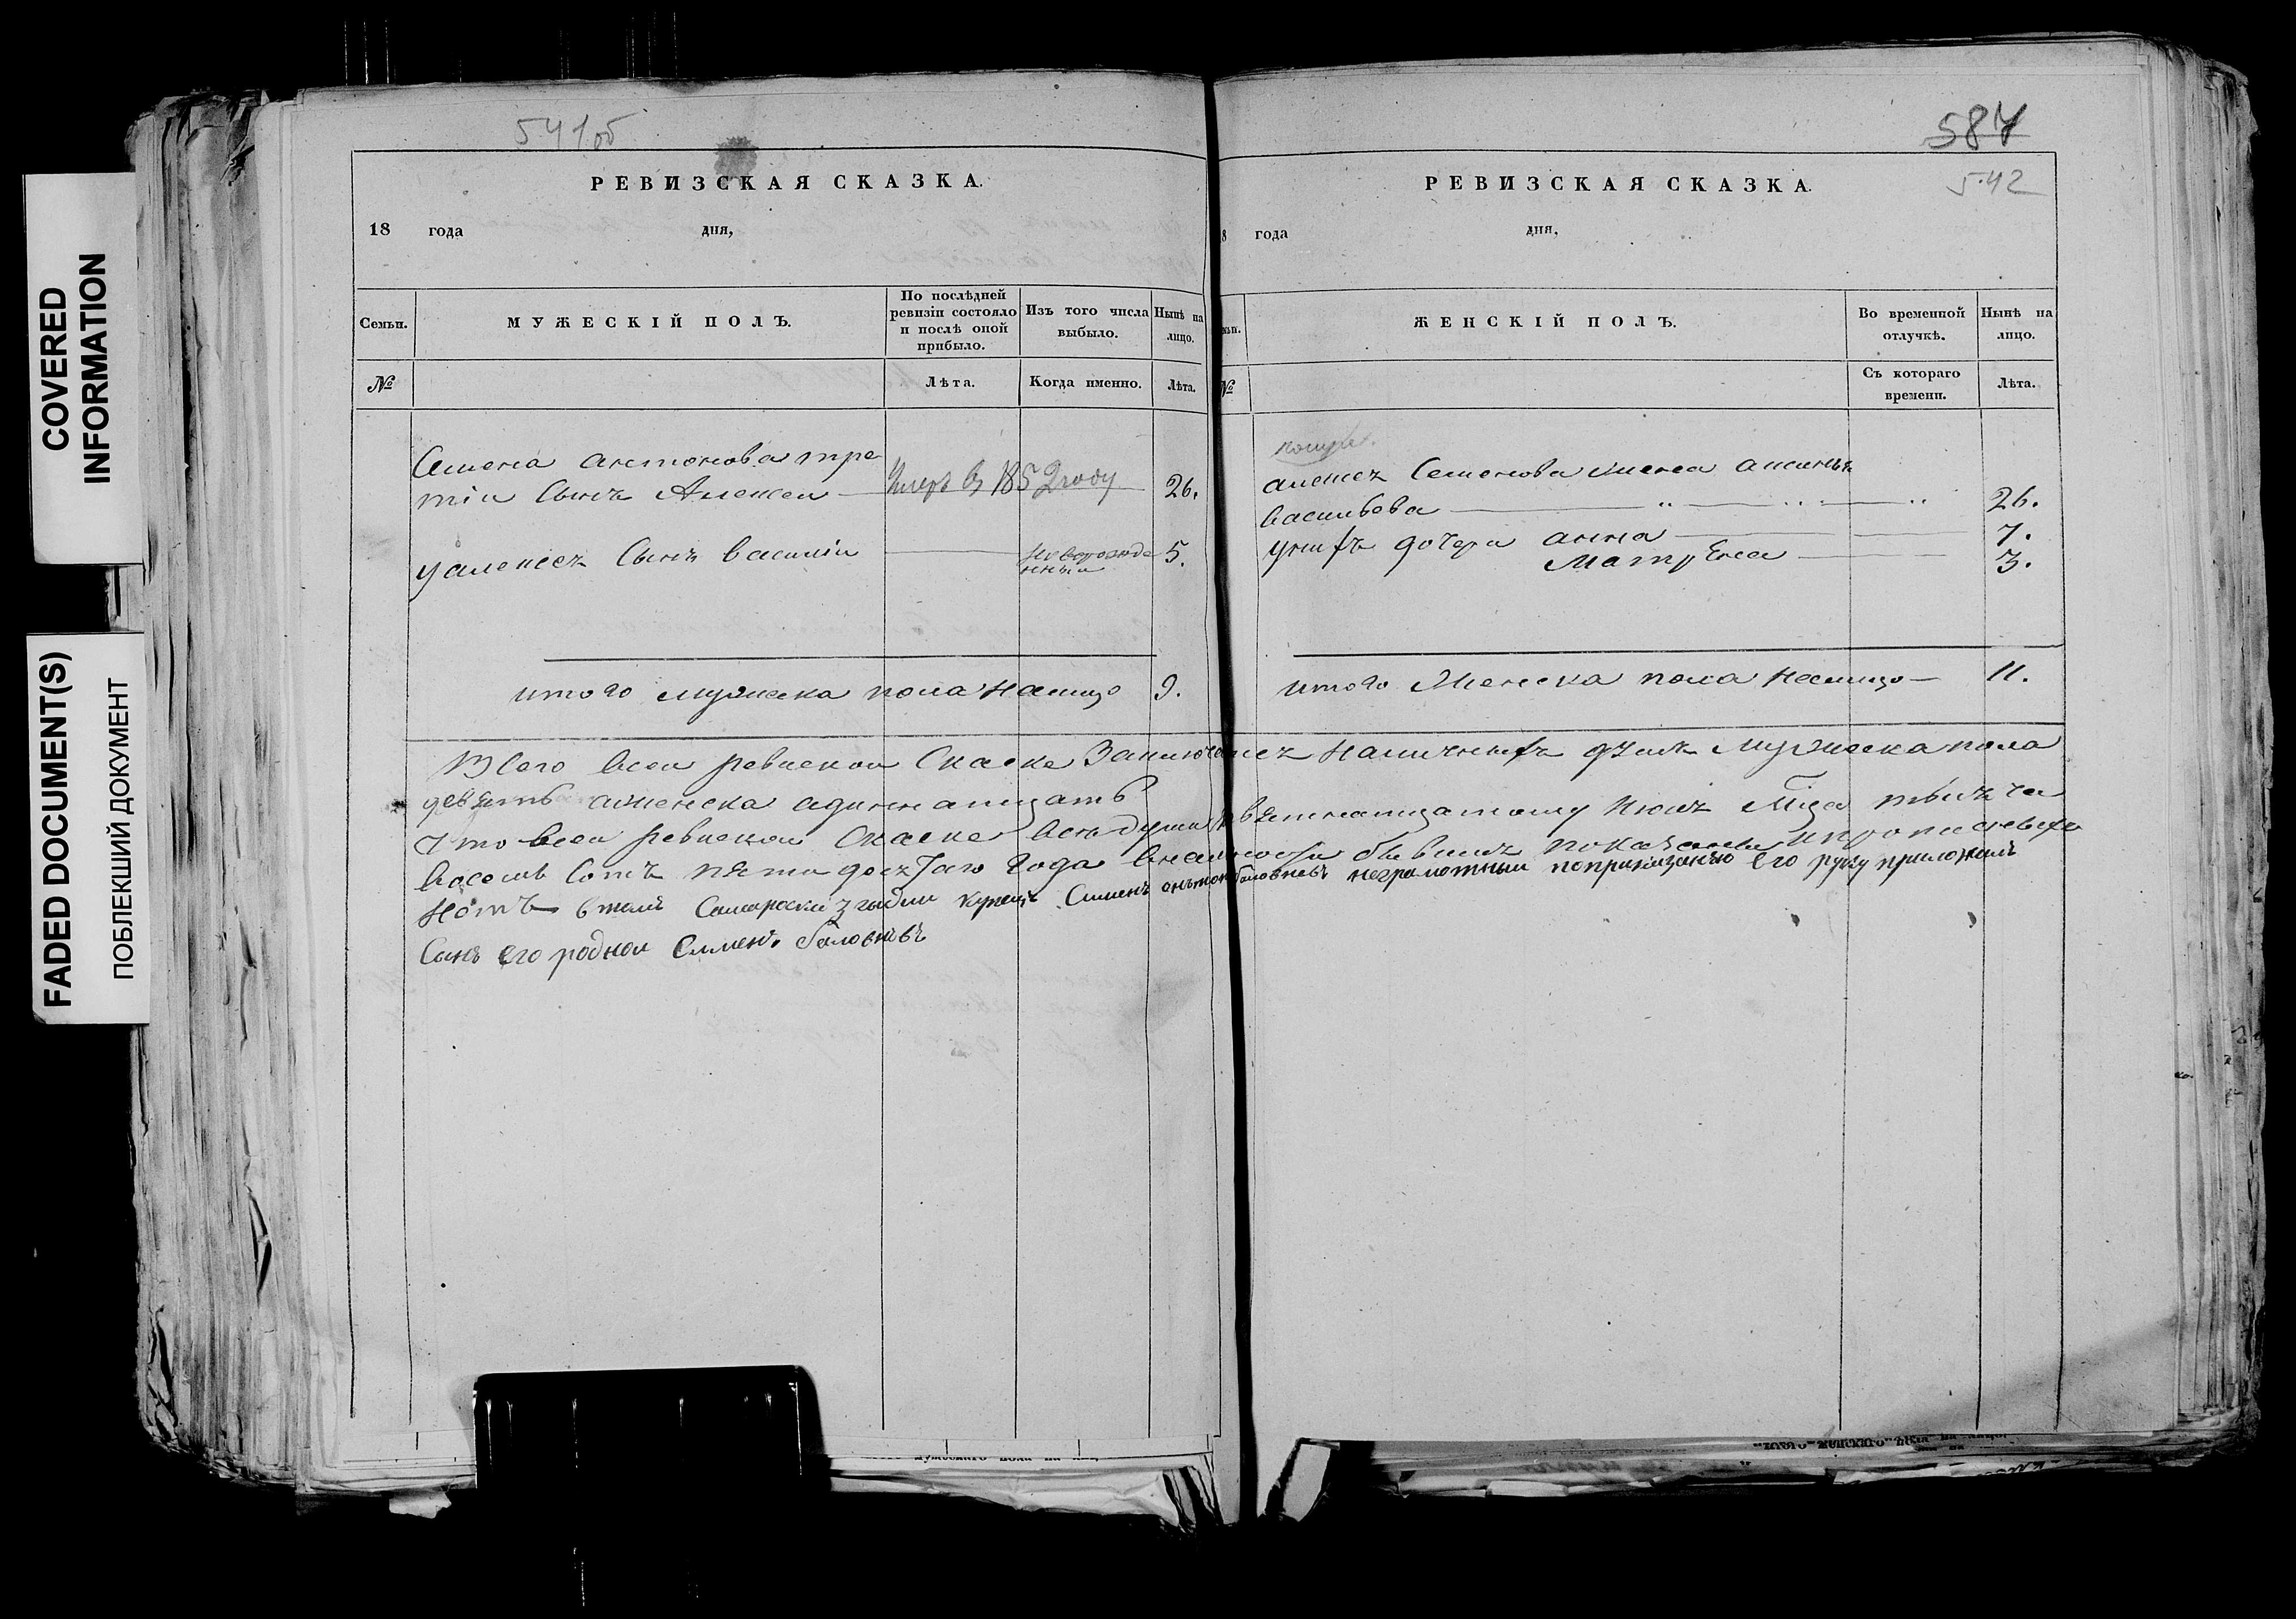 COVERED
INFORMATION
FADED DOCUMENT(S)
ПОБЛЕКШИЙ ДОКУМЕНТ
541об
РЕВИЗСКАЯ СКАЗКА.
18 года дня,
Семьи.
МУЖЕСКІЙ ПОЛЪ.
По послѣдней ревизіи состояло и послѣ оной прибыло.
Изъ того числа выбыло.
Нынѣ на лицо.
№
Лѣта.
Когда именно.
Лѣта.
Семена антонова тре
тіи Сынъ Алексеи
Умеръ въ 1852 году
26.
уалексея Сынъ василіи
новорожде
нныи
5.
итого мужеска пола налицо 9.
587
542
РЕВИЗСКАЯ СКАЗКА.
8 года дня,
ЖЕНСКІЙ ПОЛЪ.
Во временной отлучкѣ.
Нынѣ на лицо.
№
Съ котораго времени.
Лѣта.
алексея Семенова жена аксинья
васильева 26.
унихъ дочери анна 7.
Матрена 3.
итого Женска пола налицо 11.
Всего всеи ревискои Скаске Заключается Наличныхъ душъ Мужеска пола
девять аженска адиннатцать
Что всеи ревискои Скаске все души
восемь Сотъ пятидесятаго года бывшия показаны
нѣтъ втомъ Самарски купецъ Семенъ неграмотныи поприказанію его руку приложилъ
Сынъ его роднои Семенъ